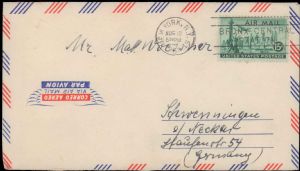 YORK, N.Y.
AIR MAIL
BRONX CENTRAL
15¢
UNITED STATES POSTAGE
Mr. Max
CORREO AEREO
VIA AIR MAIL
PAR AVION
Schwenningen
a/ Neckar
Staufenstr. 54
(Germany)